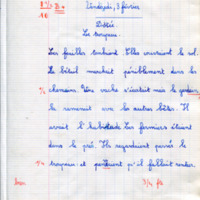 Vendredi, 3 février
Dictée
Le troupeau.
Les feuilles tombaient. Elles couvraient le sol.
Le bétail marchait péniblement dans les
chemins. Une vache s'écartait mais le gardien
la ramenait avec les autres bêtes. Il
avait l'habitude. Les fermiers étaient
dans le pré. Ils regardaient paître le
troupeau et pensaient qu'il fallait rentrer.
bien
3/4 fte